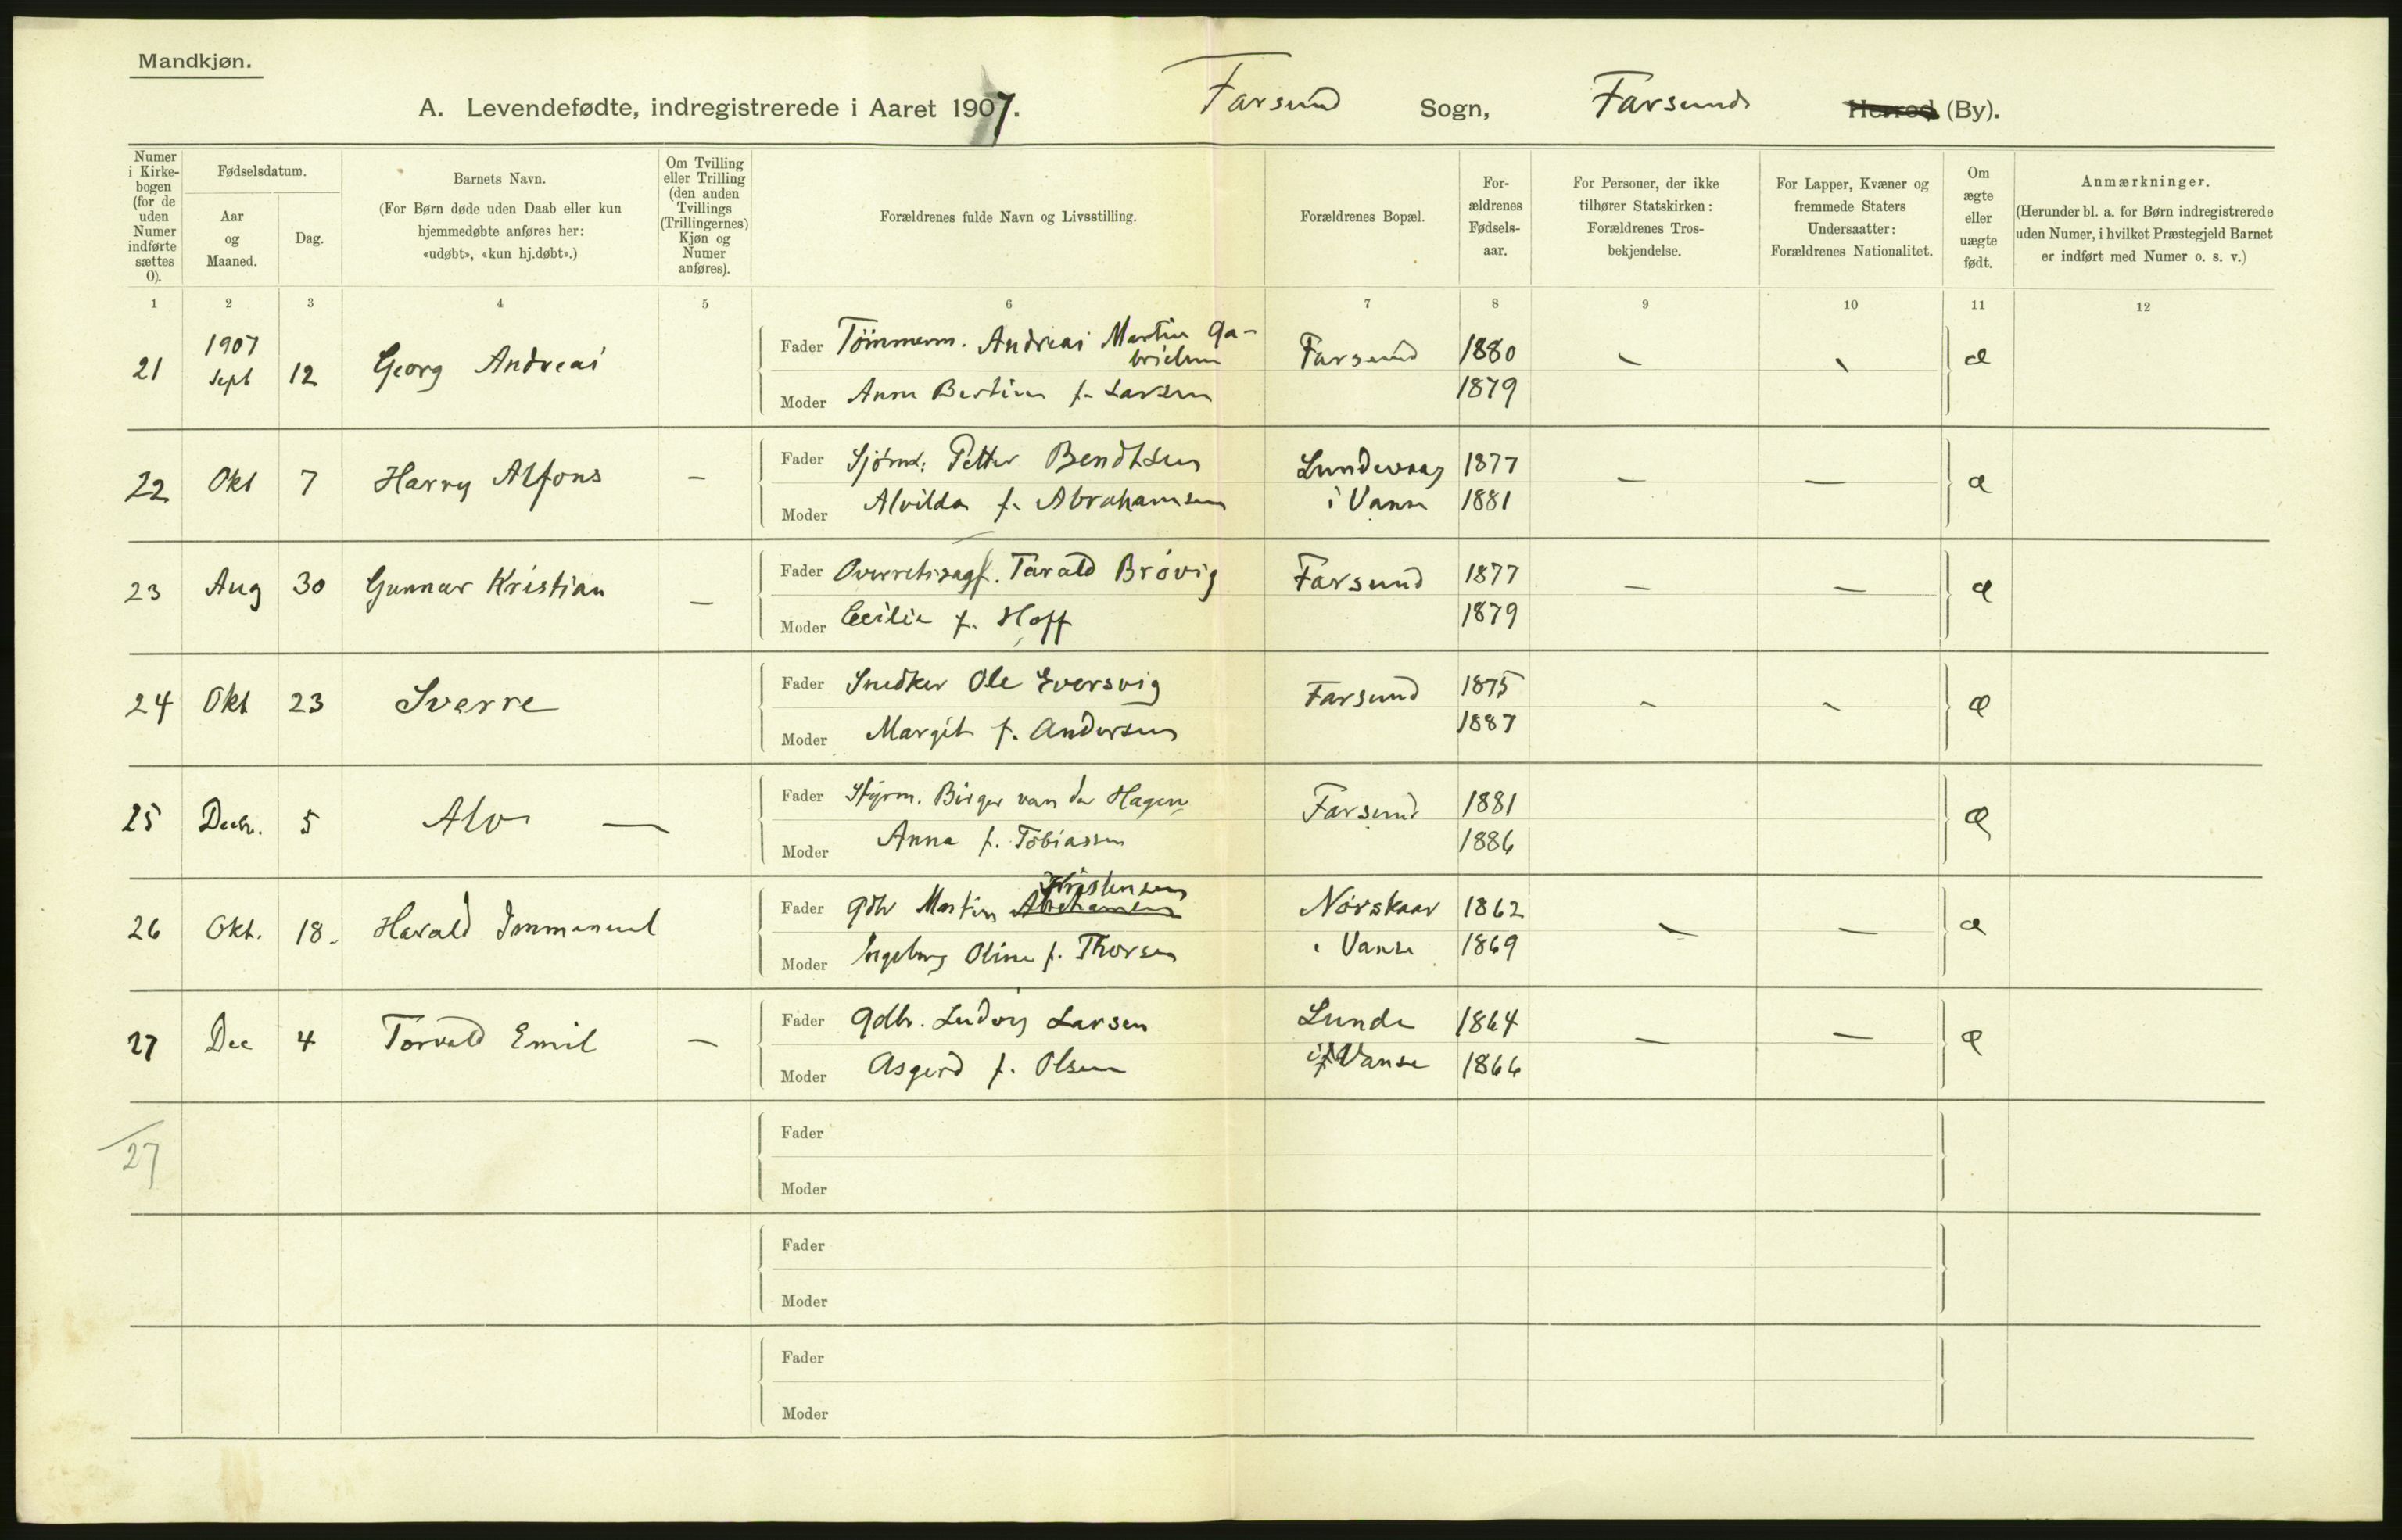 Mandkjøn.
A. Levendefødte, indregistrerede i Aaret 1907. Farsund Sogn, Farsunds Herred (By).
Numer i Kirkebogen (for de uden Numer indførte sættes 0).
Fødselsdatum.
Aar og Maaned.
Dag.
Barnets Navn.
(For Børn døde uden Daab eller kun hjemmedøbte anføres her: «udøbt», «kun hj.døbt».)
Om Tvilling eller Trilling (den anden Tvillings (Trillingernes) Kjøn og Numer anføres).
Forældrenes fulde Navn og Livsstilling.
Forældrenes Bopæl.
Forældrenes Fødselsaar.
For Personer, der ikke tilhører Statskirken: Forældrenes Trosbekjendelse.
For Lapper, Kvæner og fremmede Staters Undersaatter: Forældrenes Nationalitet.
Om ægte eller uægte født.
Anmærkninger.
(Herunder bl. a. for Børn indregistrerede uden Numer, i hvilket Præstegjeld Barnet er indført med Numer o. s. v.)
1 2 3 4 5 6 7 8 9 10 11 12
21 1907 Sept 12 Georg Andreas Fader Tömmerm. Andreas Martin Gabrielsen Farsund 1880 - - æ
Moder Anna Bertine f. Larsen 1879
22 Okt 7 Harry Alfons - Fader Sjömd: Petter Bendtsen Lundevaag 1877 - - æ
Moder Alvilda f. Abrahamsen i Vanse 1881
23 Aug 30 Gunnar Kristian - Fader Overretssagf. Tarald Brövig Farsund 1877 - - æ
Moder Cecilie f. Hoff 1879
24 Okt 23 Sverre Fader Snedker Ole Eversvig Farsund 1875 - - æ
Moder Margit f. Andersen 1887
25 Decbr. 5 Alv - Fader Styrm. Birger van der Hagen Farsund 1881 æ
Moder Anna f. Tobiassen 1886
26 Okt. 18. Harald Immanuel Fader Gdbr Martin Abrahamsen Kristensen Nörskaar 1862 - - æ
Moder Ingeborg Oline f. Thorsen i Vanse 1869
27 Dec 4 Torvald Emil - Fader Gdbr. Ludvig Larsen Lunde 1864 - - æ
Moder Asgerd f. Olsen i Vanse 1866
27 Fader
Moder
Fader
Moder
Fader
Moder